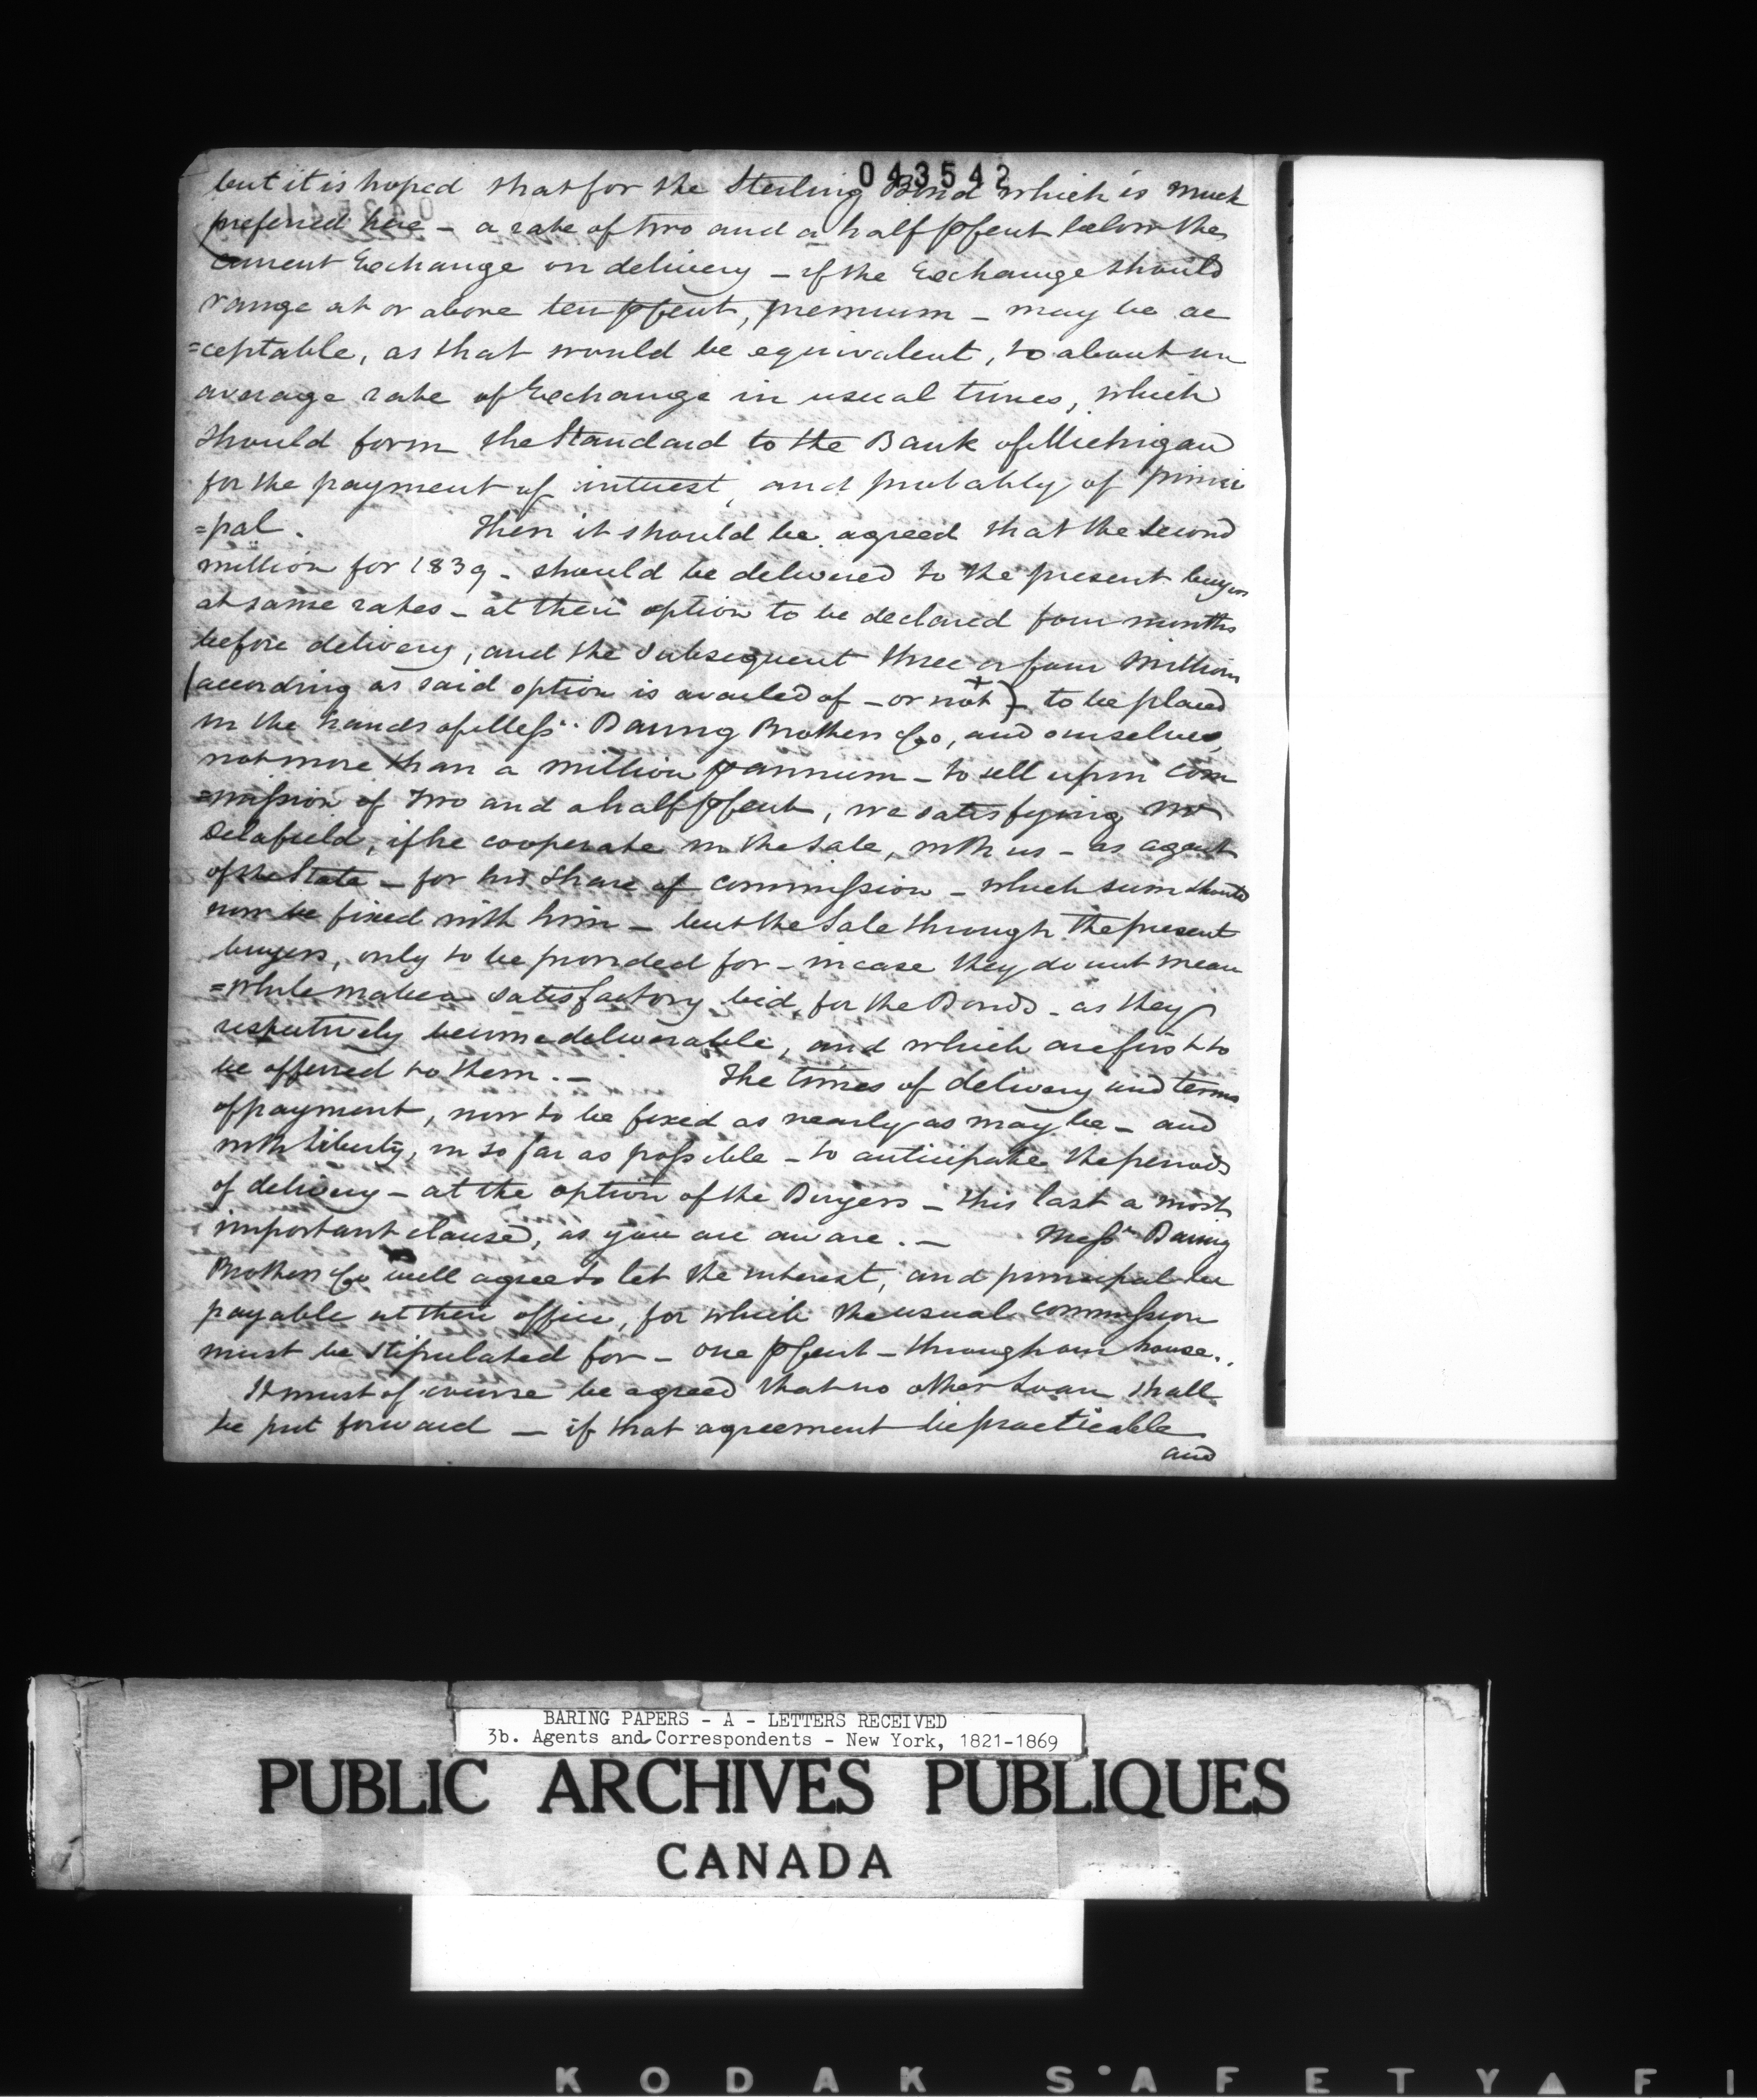 043542
but it is hoped that for the Sterling Bond which is much
preferred here - a rate of two and a half pCent below the
current Exchange on delivery - if the Exchange should
range at or above ten pCent, premium - may be ac
=ceptable, as that would be equivalent, to about an
average rate of Exchange in usual times, which
should form the Standard to the Bank of Michigan
for the payment of interest, and probably of princi
=pal. Then it should be agreed that the second
million for 1839 - should be delivered to the present buyers
at same rates - at their option to be declared four months
before delivery, and the subsequent three or four Million
(according as said option is availed of - or not) - to be placed
in the hands of Messrs. Baring Brothers &Co, and ourselves,
not more than a million p annum - to sell upon com
=mission of two and a half pCent, we satisfying Mr
Delafield, if he cooperate in the Sale, with us - as agent
of the State - for his Share of commission - which sum should
now be fixed with him - but the Sale through the present
buyers, only to be provided for - in case they do not mean
=while make a satisfactory bid, for the Bonds - as they
respectively become deliverable, and which are first to
be offered to them. - The times of delivery and terms
of payment, now to be fixed as nearly as may be - and
with liberty, in so far as possible - to anticipate the periods
of delivery - at the option of the Buyers - this last a most
important clause, as you are aware. - Messrs Baring
Brothers &Co will agree to let the interest, and principal be
payable at their office, for which the usual commission
must be stipulated for - one pCent - through our house.
It must of course be agreed that no other Loan shall
be put forward - if that agreement be practicable
and
BARING PAPERS - A - LETTERS RECEIVED
3b. Agents and Correspondents - New York, 1821-1869
PUBLIC ARCHIVES PUBLIQUES
CANADA
KODAK SAFETY FI